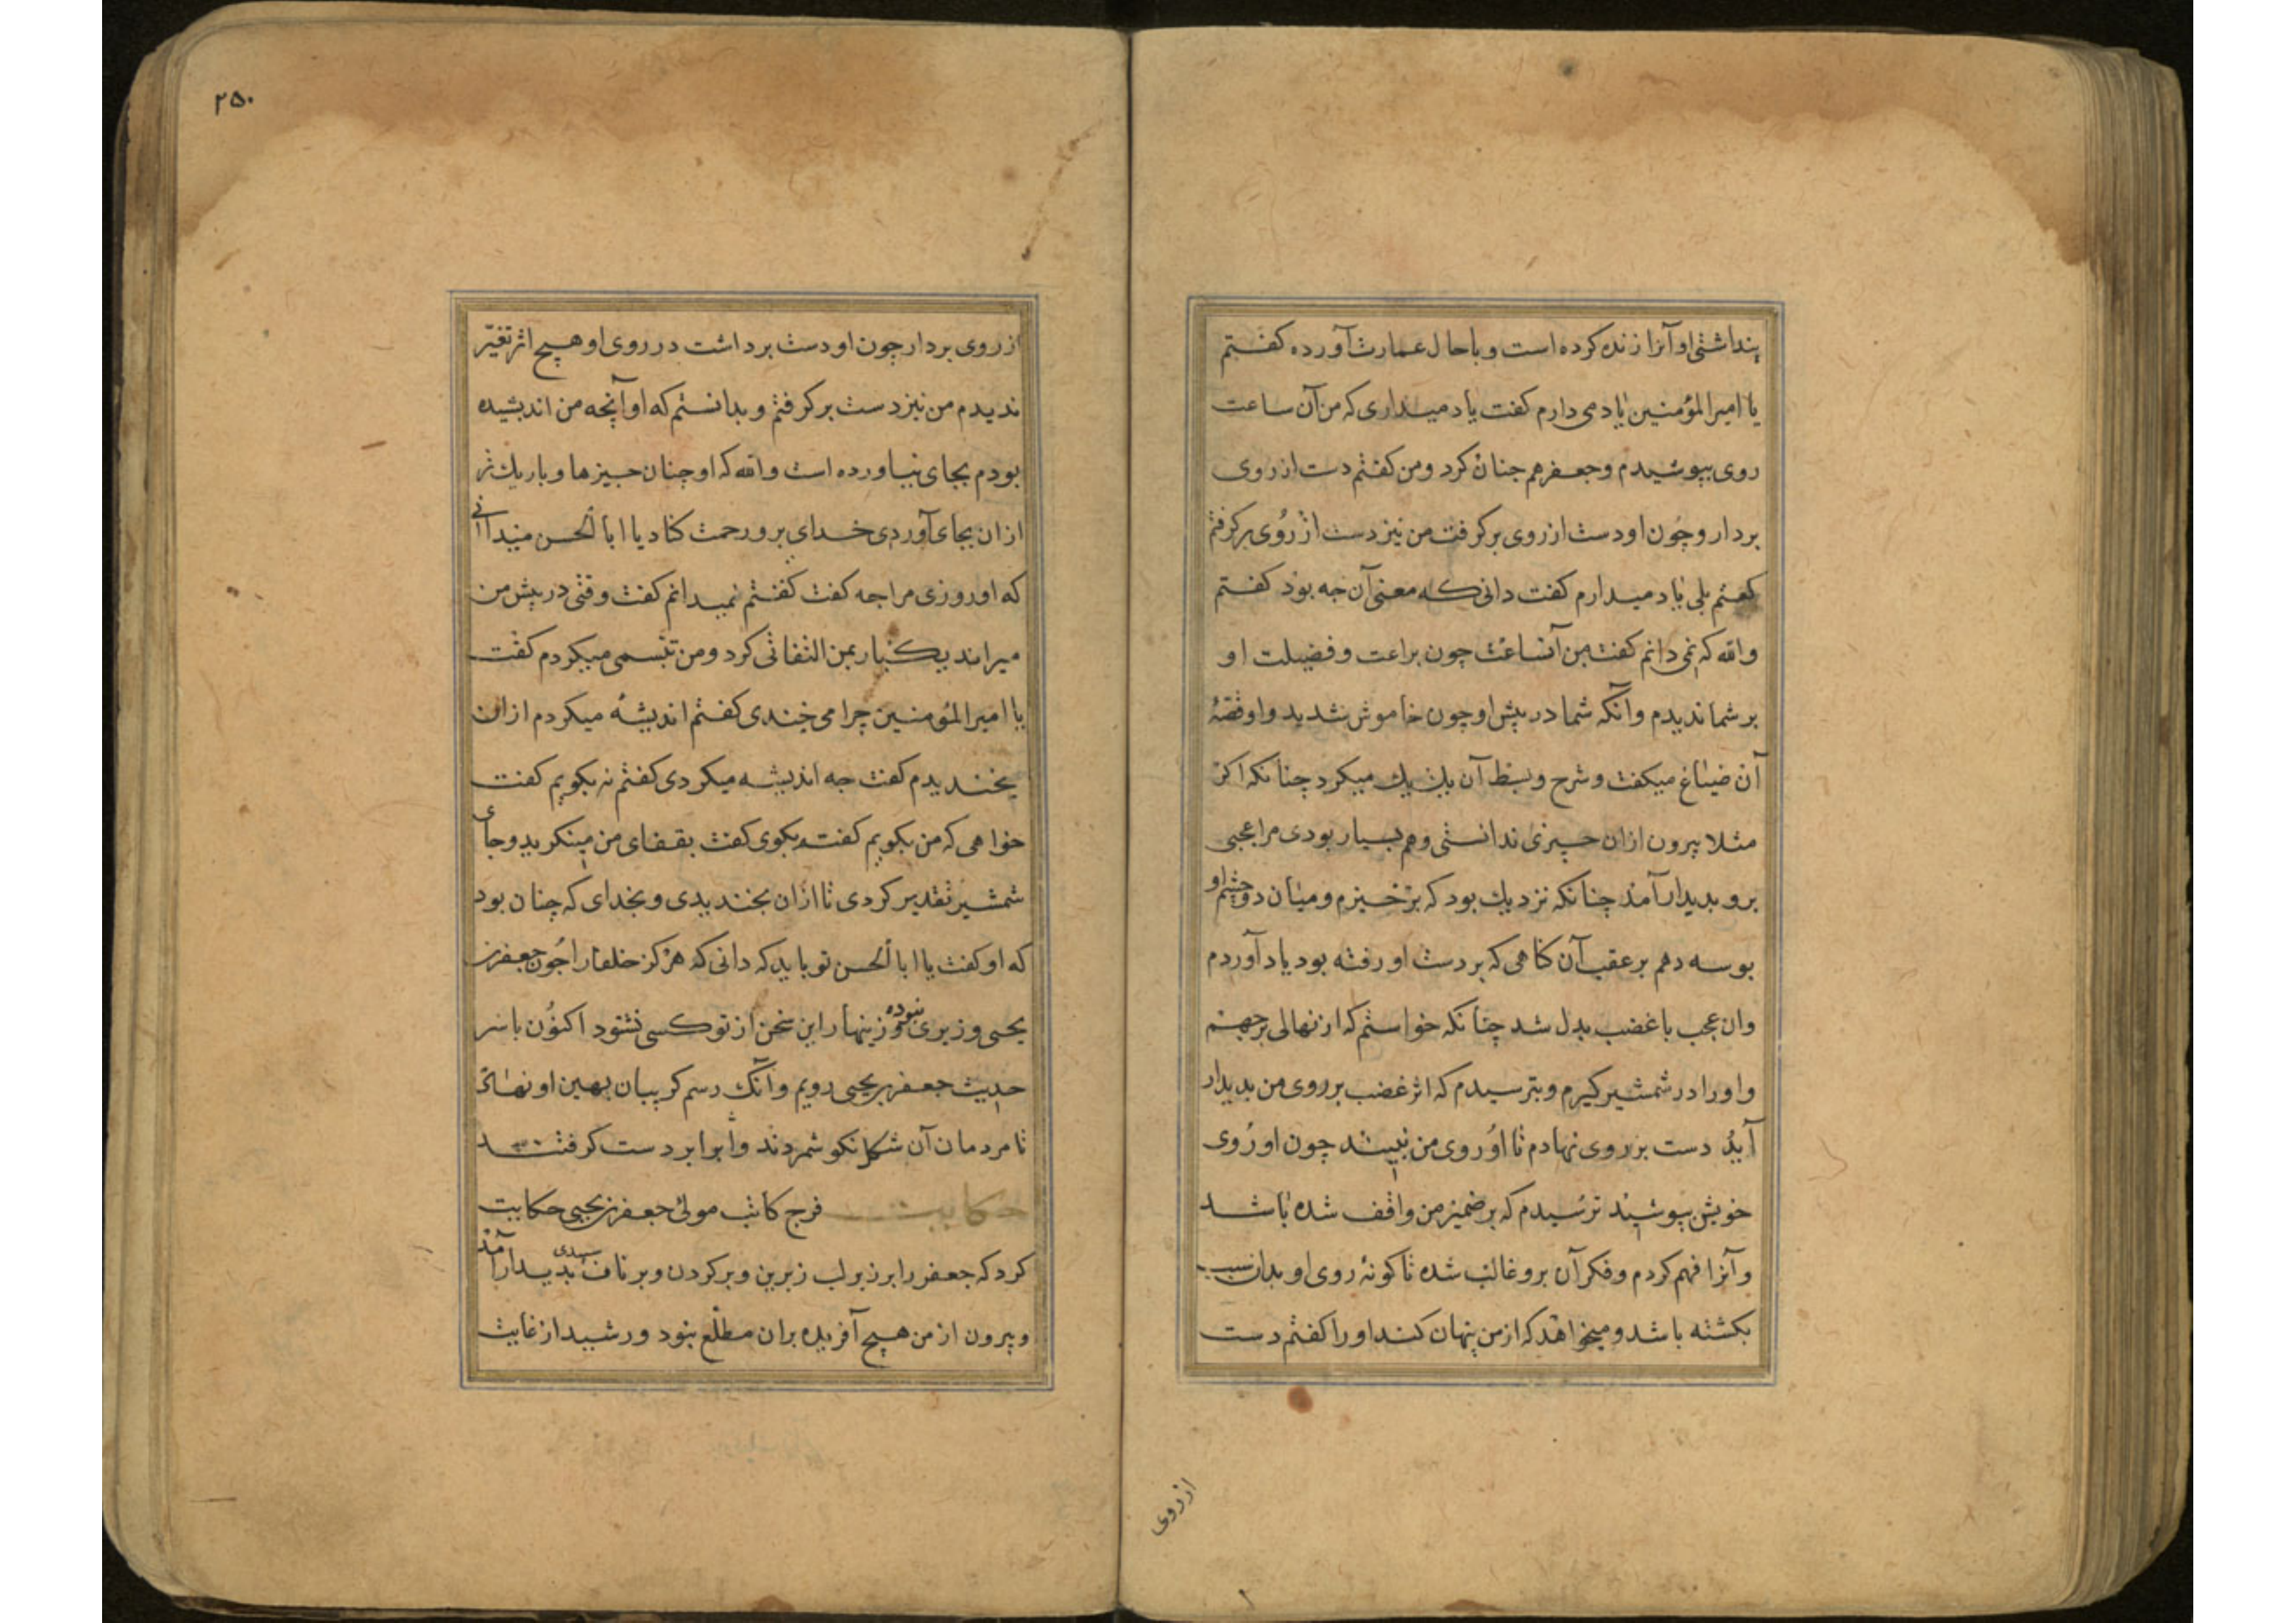 پنداشتی او آنرا زنده کرده است و باحال عمارت آورده کفتم
یا امیر المؤمنین یاد می دارم کفت یاد میداری که من آن ساعت
روی بپوشیدم و جعفر هم جنان کرد و من کفتم دست از روی
بردار و چون او دست از روی برکرفت من نیز دست از روی برکرفتم
کفتم بلی یاد میدارم کفت دانی که معنی آن جه بود کفتم
والله که نمی دانم کفت من آنساعت چون براعت و فضیلت او
بر شما ندیدم وآنکه شما در پیش او چون خاموش شدید و او قصّهٔ
آن ضیاع میکفت و شرح و بسط آن یک یک میکرد چنانکه اکر
مثلا بیرون ازان چیزی ندانستی و هم بسیار بودی مرا عجبی
برو بدیدار آمد چنانکه نزدیک بود که برخیزم و میان دو چشم او
بوسه دهم بر عقب آن کناهی که بر دست او رفته بود یاد آوردم
وان عجب با غضب بدل شد چنانکه خواستم که از نهالی برجهم
و او را در شمشیر کیرم و بترسیدم که اثر غضب بر روی من بدیدار
آید دست بر روی نهادم تا او روی من نبیند چون او روی
خویش بپوشید ترسیدم که بر ضمیر من واقف شده باشد
و آنرا فهم کردم و فکر آن برو غالب شده تا کونهٔ روی او بدان سبب
بکشته باشد و میخواهد که از من پنهان کند او را کفتم دست
از روی
۲۵۰
از روی بردار جون او دست برداشت در روی او هیچ اثر تغیّر
ندیدم من نیز دست برکرفتم و بدانستم که او آنچه من اندیشیده
بودم بجای نیاورده است والله که او چنان جیزها و باریک تر
ازان بجای آوردی خدای برو رحمت کناد یا ابا الحسن میدانی
که او روزی مرا جه کفت کفتم نمیدانم کفت وقتی در پیش من
میراند یکبار بمن التفاتی کرد و من تبسمی میکردم کفت
یا امیر المؤمنین چرا می خندی کفتم اندیشهٔ میکردم ازان
بخندیدم کفت جه اندیشه میکردی کفتم نه بکویم کفت
خواهی که من بکویم کفتم بکوی کفت بقفای من مینکریدی و جای
شمشیر تقدیر کردی تا ازان بخندیدی و بخدای که چنان بود
که او کفت یا ابا الحسن تو باید که دانی که هرکز خلفا را جون جعفر بن
یحیی وزیری نبوده و زینهار این سخن از تو کسی نشنود اکنون با سر
حدیث جعفر بن یحیی رویم وآنک رسم کریبان پهن او نهاد
تا مردمان آن شکل نکو شمردند و آنرا بر دست کرفتند
حکایت فرج کاتب مولی جعفر بن یحیی حکایت
کرد که جعفر را بر زبر لب زبرین و بر کردن و بر ناف سپیدی بدیدار آمد
و بیرون از من هیچ آفریده بران مطلع نبود و رشید از غایت